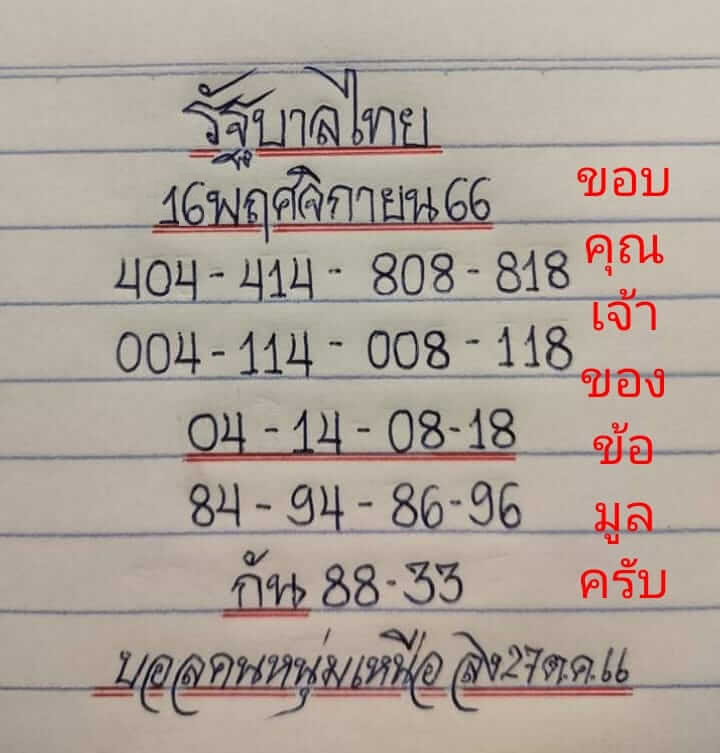 รัฐบาลไทย
16 พฤศจิกายน 66
404 - 414 - 808 - 818
004 - 114 - 008 - 118
04 - 14 - 08 - 18
84 - 94 - 86 - 96
กัน 88 - 33
บอลคนหนุ่มเหนือ 27 ต.ค. 66
ขอบ
คุณ
เจ้า
ของ
ข้อ
มูล
ครับ